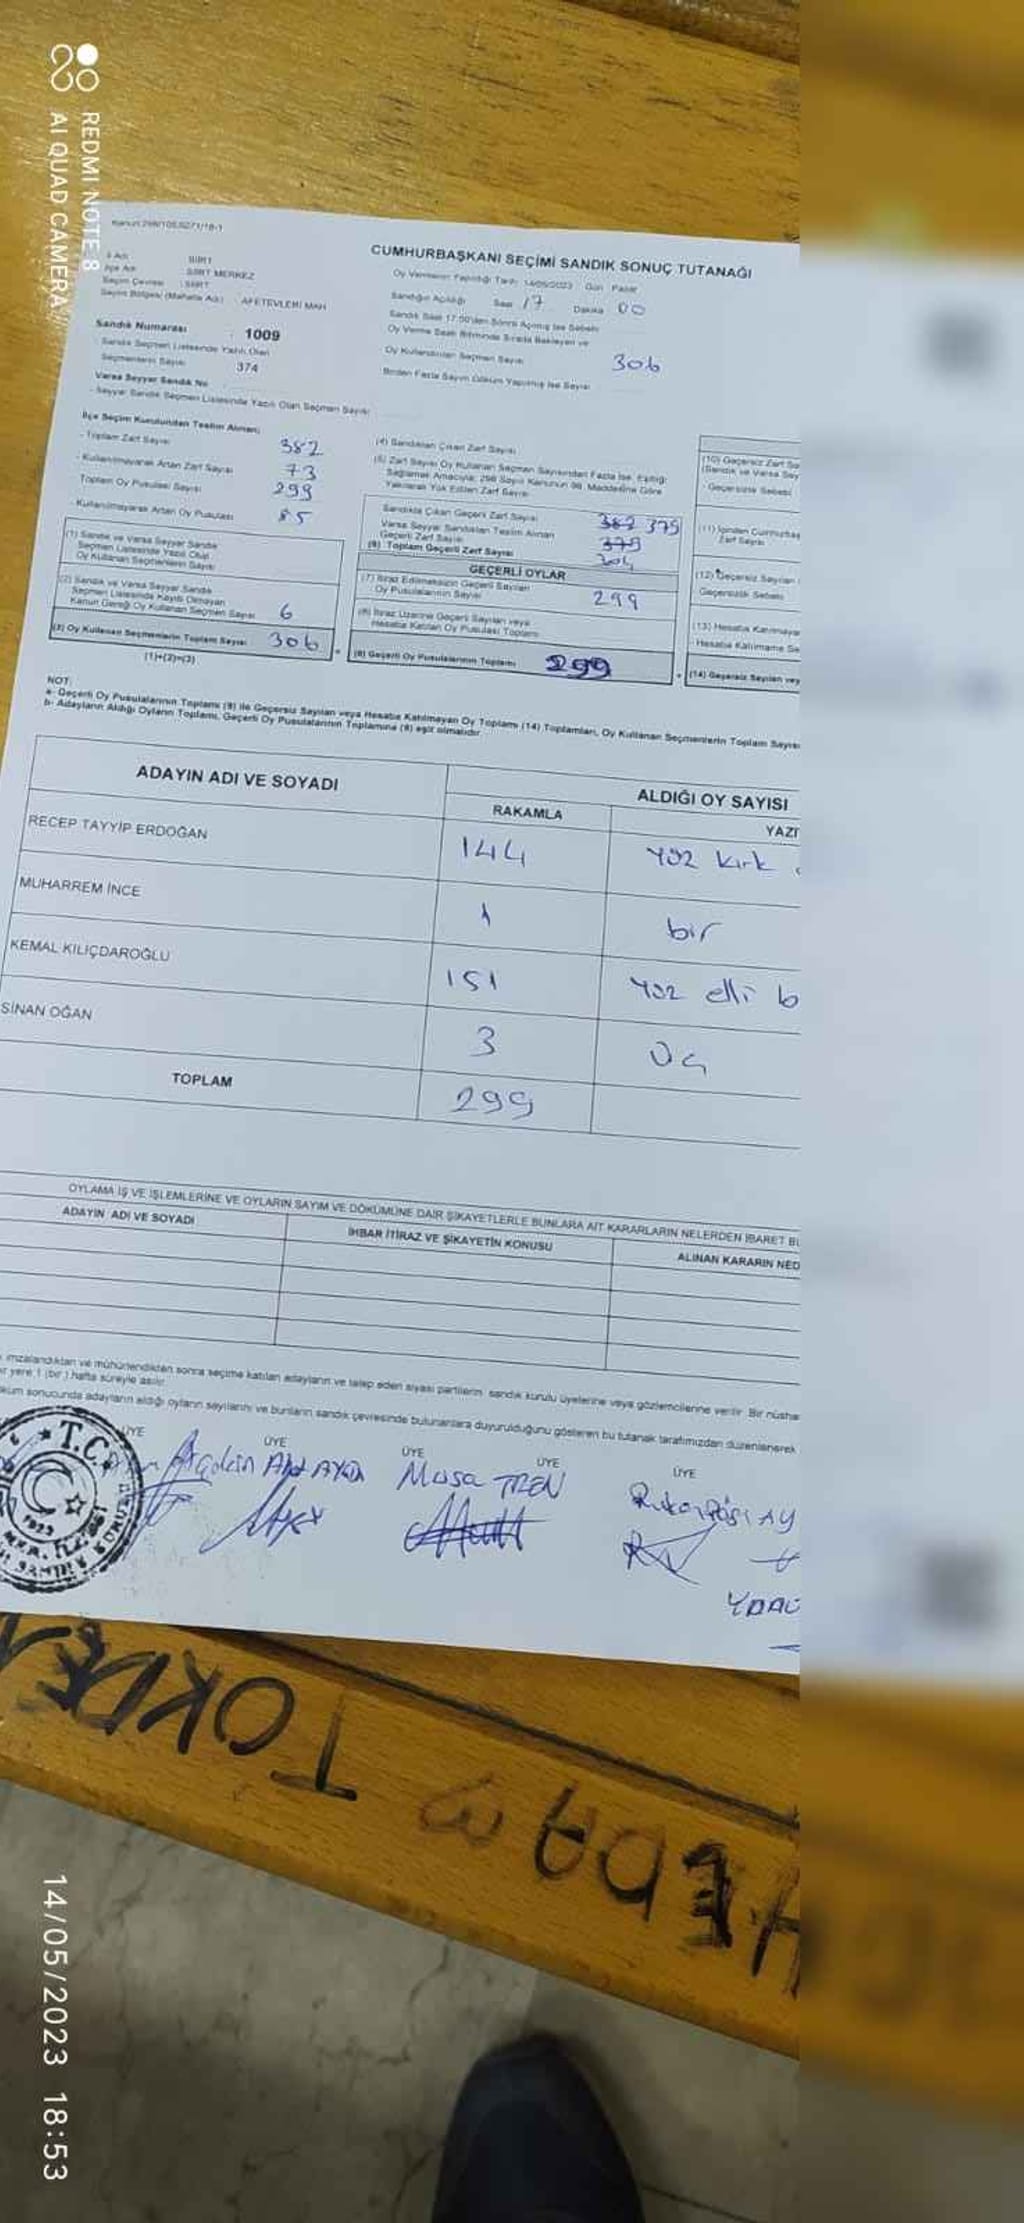 REDMI NOTE 8
AI QUAD CAMERA
Kanun:298/105,6271/18-1
CUMHURBAŞKANI SEÇİMİ SANDIK SONUÇ TUTANAĞI
İl Adı : SİİRT
İlçe Adı : SİİRT MERKEZ
Seçim Çevresi : SİİRT
Seçim Bölgesi (Mahalle Adı) : AFETEVLERİ MAH
Sandık Numarası : 1009
Sandık Seçmen Listesinde Yazılı Olan
Seçmenlerin Sayısı 374
Varsa Seyyar Sandık No
- Seyyar Sandık Seçmen Listesinde Yazılı Olan Seçmen Sayısı
Oy Vermenin Yapıldığı Tarih: 14/05/2023 Gün Pazar
Sandığın Açıldığı Saat 17 Dakika 00
Sandık Saat 17:00'den Sonra Açılmış İse Sebebi
Oy Verme Saati Bitiminde Sırada Bekleyen ve
Oy Kullandırılan Seçmen Sayısı 306
Birden Fazla Sayım Döküm Yapılmış İse Sayısı
İlçe Seçim Kurulundan Teslim Alınan;
- Toplam Zarf Sayısı 382
- Kullanılmayarak Artan Zarf Sayısı 73
Toplam Oy Pusulası Sayısı 299
- Kullanılmayarak Artan Oy Pusulası 85
(1) Sandık ve Varsa Seyyar Sandık
Seçmen Listesinde Yazılı Olup
Oy Kullanan Seçmenlerin Sayısı
(2) Sandık ve Varsa Seyyar Sandık
Seçmen Listesinde Kayıtlı Olmayan
Kanun Gereği Oy Kullanan Seçmen Sayısı 6
(3) Oy Kullanan Seçmenlerin Toplam Sayısı 306
(1)+(2)=(3)
(4) Sandıktan Çıkan Zarf Sayısı
(5) Zarf Sayısı Oy Kullanan Seçmen Sayısından Fazla İse, Eşitliği
Sağlamak Amacıyla; 298 Sayılı Kanunun 98. Maddesine Göre
Yakılarak Yok Edilen Zarf Sayısı
Sandıkta Çıkan Geçerli Zarf Sayısı 382 375
Varsa Seyyar Sandıktan Teslim Alınan
Geçerli Zarf Sayısı 375
(6) Toplam Geçerli Zarf Sayısı 304
GEÇERLİ OYLAR
(7) İtiraz Edilmeksizin Geçerli Sayılan
Oy Pusulalarının Sayısı 299
(8) İtiraz Üzerine Geçerli Sayılan veya
Hesaba Katılan Oy Pusulası Toplamı
(9) Geçerli Oy Pusulalarının Toplamı 299
(10) Geçersiz Zarf Sa
(Sandık ve Varsa Sey
- Geçersizlik Sebebi
(11) İçinden Cumhurbaş
Zarf Sayısı
(12) Geçersiz Sayılan
Geçersizlik Sebebi
(13) Hesaba Katılmaya
Hesaba Katılmama Se
(14) Geçersiz Sayılan vey
NOT:
a- Geçerli Oy Pusulalarının Toplamı (9) ile Geçersiz Sayılan veya Hesaba Katılmayan Oy Toplamı (14) Toplamları, Oy Kullanan Seçmenlerin Toplam Sayısı
b- Adayların Aldığı Oyların Toplamı, Geçerli Oy Pusulalarının Toplamına (9) eşit olmalıdır.
ADAYIN ADI VE SOYADI
ALDIĞI OY SAYISI
RAKAMLA YAZI
RECEP TAYYİP ERDOĞAN 144 yüz kırk
MUHARREM İNCE 1 bir
KEMAL KILIÇDAROĞLU 151 yüz elli b
SİNAN OĞAN 3 üç
TOPLAM 299
OYLAMA İŞ VE İŞLEMLERİNE VE OYLARIN SAYIM VE DÖKÜMÜNE DAİR ŞİKAYETLERLE BUNLARA AİT KARARLARIN NELERDEN İBARET BU
ADAYIN ADI VE SOYADI İHBAR İTİRAZ VE ŞİKAYETİN KONUSU ALINAN KARARIN NED
imzalandıktan ve mühürlendikten sonra seçime katılan adayların ve talep eden siyasi partilerin sandık kurulu üyelerine veya gözlemcilerine verilir. Bir nüsha
ir yere 1 (bir) hafta süreyle asılır.
küm sonucunda adayların aldığı oyların sayılarını ve bunların sandık çevresinde bulunanlara duyurulduğunu gösteren bu tutanak tarafımızdan düzenlenerek
ÜYE ÜYE ÜYE ÜYE ÜYE
Musa TREN
T.C.
TOKDE
HEDA
14/05/2023 18:53